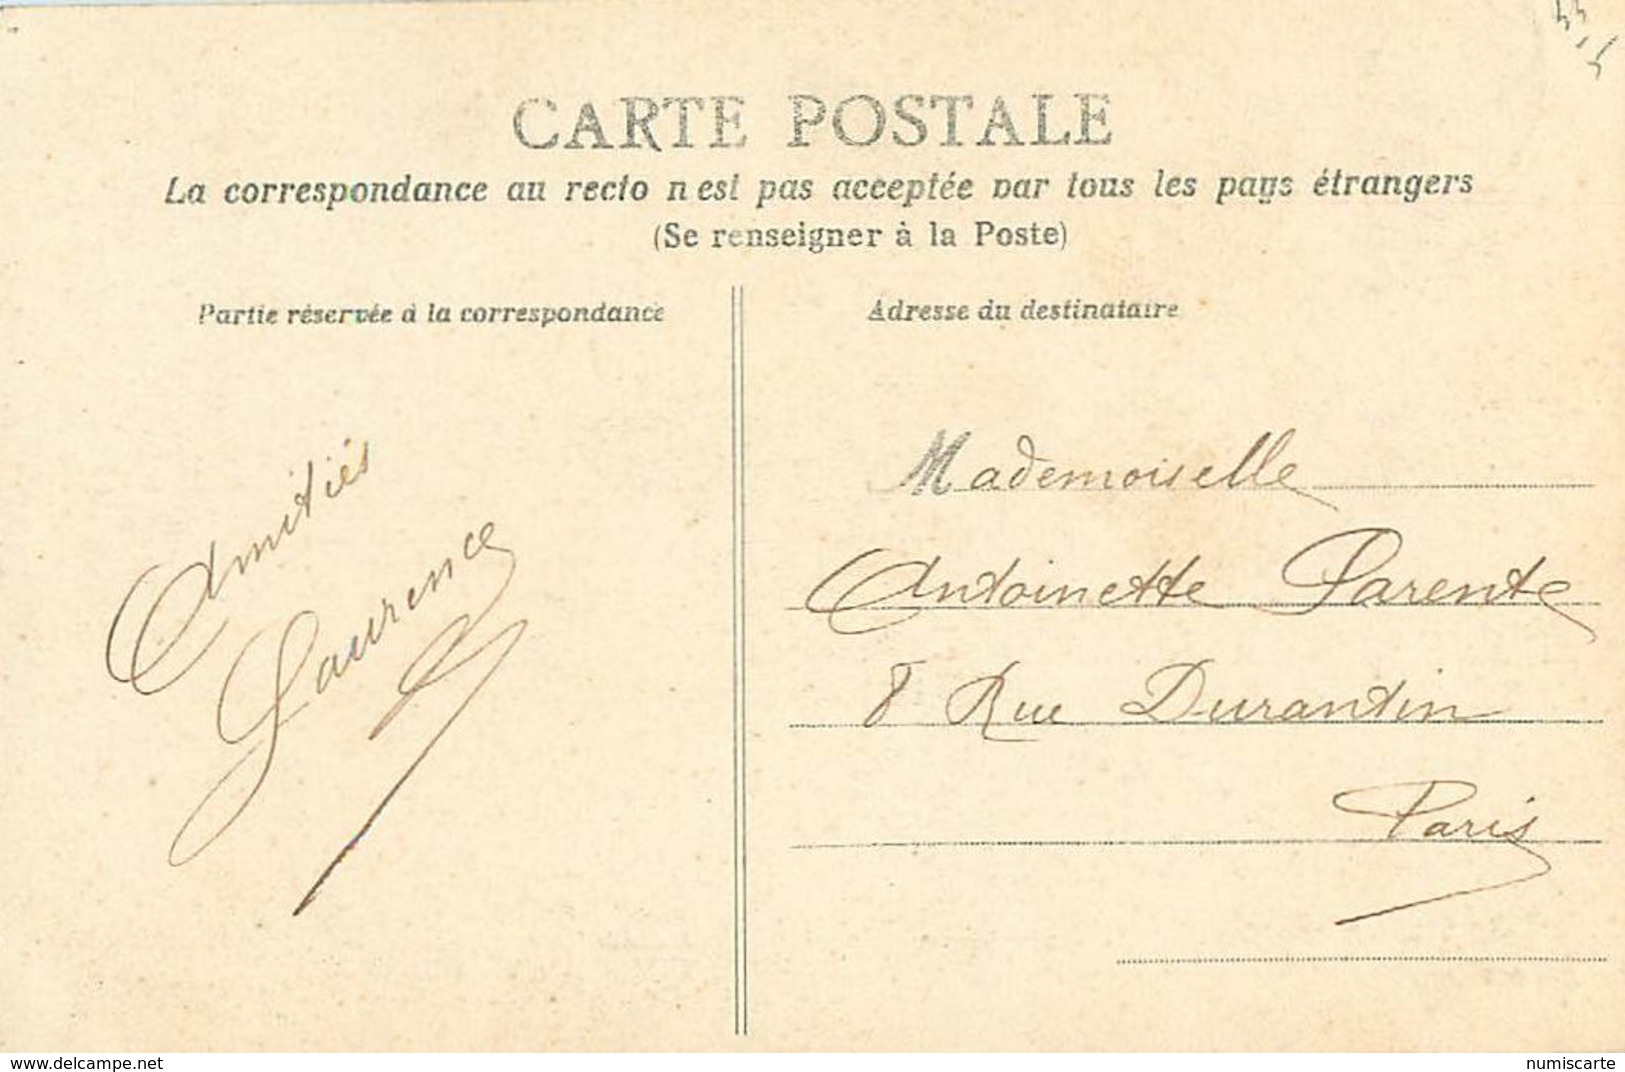 CARTE POSTALE
La correspondance au recto n'est pas acceptée par tous les pays étrangers
(Se renseigner à la Poste)
Partie réservée à la correspondance
Adresse du destinataire
Amitiés
Laurence
Mademoiselle
Antoinette Parente
8 Rue Durantin
Paris
www.delcampe.net
numiscarte